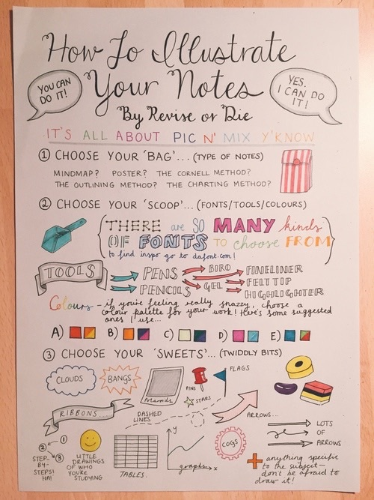 How To Illustrate
Your Notes
YOU CAN
DO IT!
YES,
I CAN DO
IT!
By Revise or Die
IT'S ALL ABOUT PIC N' MIX Y'KNOW
① CHOOSE YOUR 'BAG'... (TYPE OF NOTES)
MINDMAP? POSTER? THE CORNELL METHOD?
THE OUTLINING METHOD? THE CHARTING METHOD?
② CHOOSE YOUR 'SCOOP'... (FONTS/TOOLS/COLOURS)
THERE are SO MANY kinds
OF FONTS TO choose FROM
to find inspo go to dafont.com!
TOOLS
PENS
BIRO
FINELINER
PENCILS
GEL
FELT TIP
HIGHLIGHTER
Colours - If you're feeling really snazzy, choose a
colour palette for your work! Here's some suggested
ones I use...
A) B) C) D) E)
③ CHOOSE YOUR 'SWEETS'... (TWIDDLY BITS)
CLOUDS
BANGS
PINS
FLAGS
STARS
RIBBONS
DASHED
LINES
ARROWS...
LOTS
OF
ARROWS
① ② ③
STEP-
BY-
STEPS!
HA!
LITTLE
DRAWINGS
OF WHO
YOU'RE
STUDYING
TABLES
y
x
graphs
COGS
+ anything specific
to the subject -
don't be afraid to
draw it!